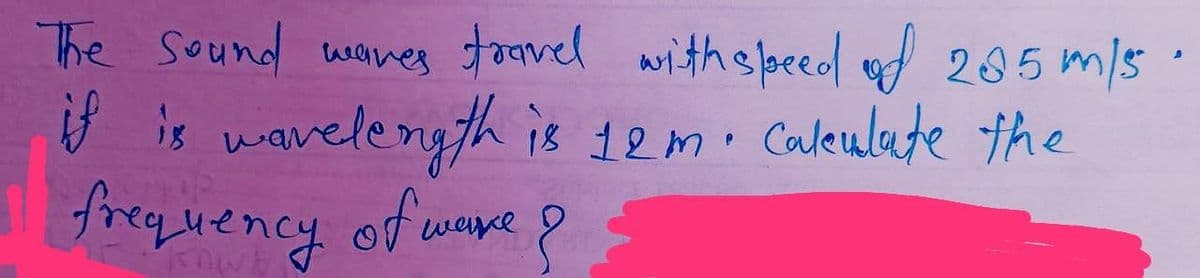 The sound waves travel with speed of 285 m/s.
if is wavelength is 12m. Calculate the
frequency of wave ?